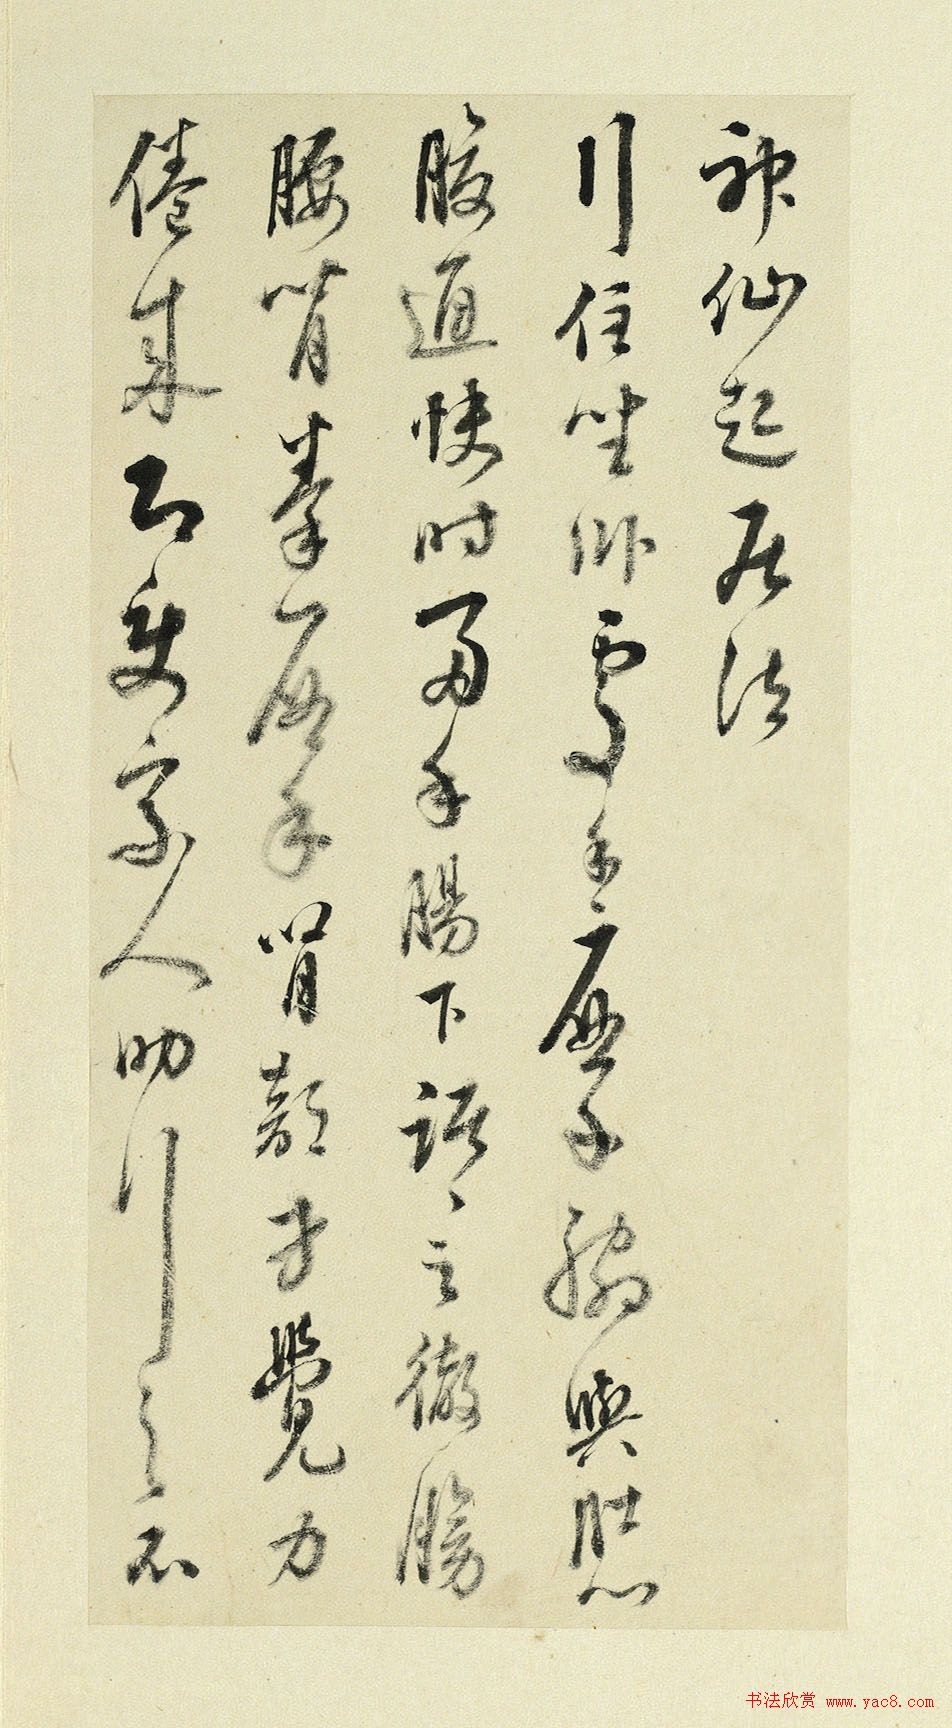 神仙起居法
行住坐卧處手摩脅與肚心
腹通快時兩手腸下踞〻之徹膀
腰背拳摩腎部才覺力
倦来即使家人助行之不
书法欣赏 www.yac8.com